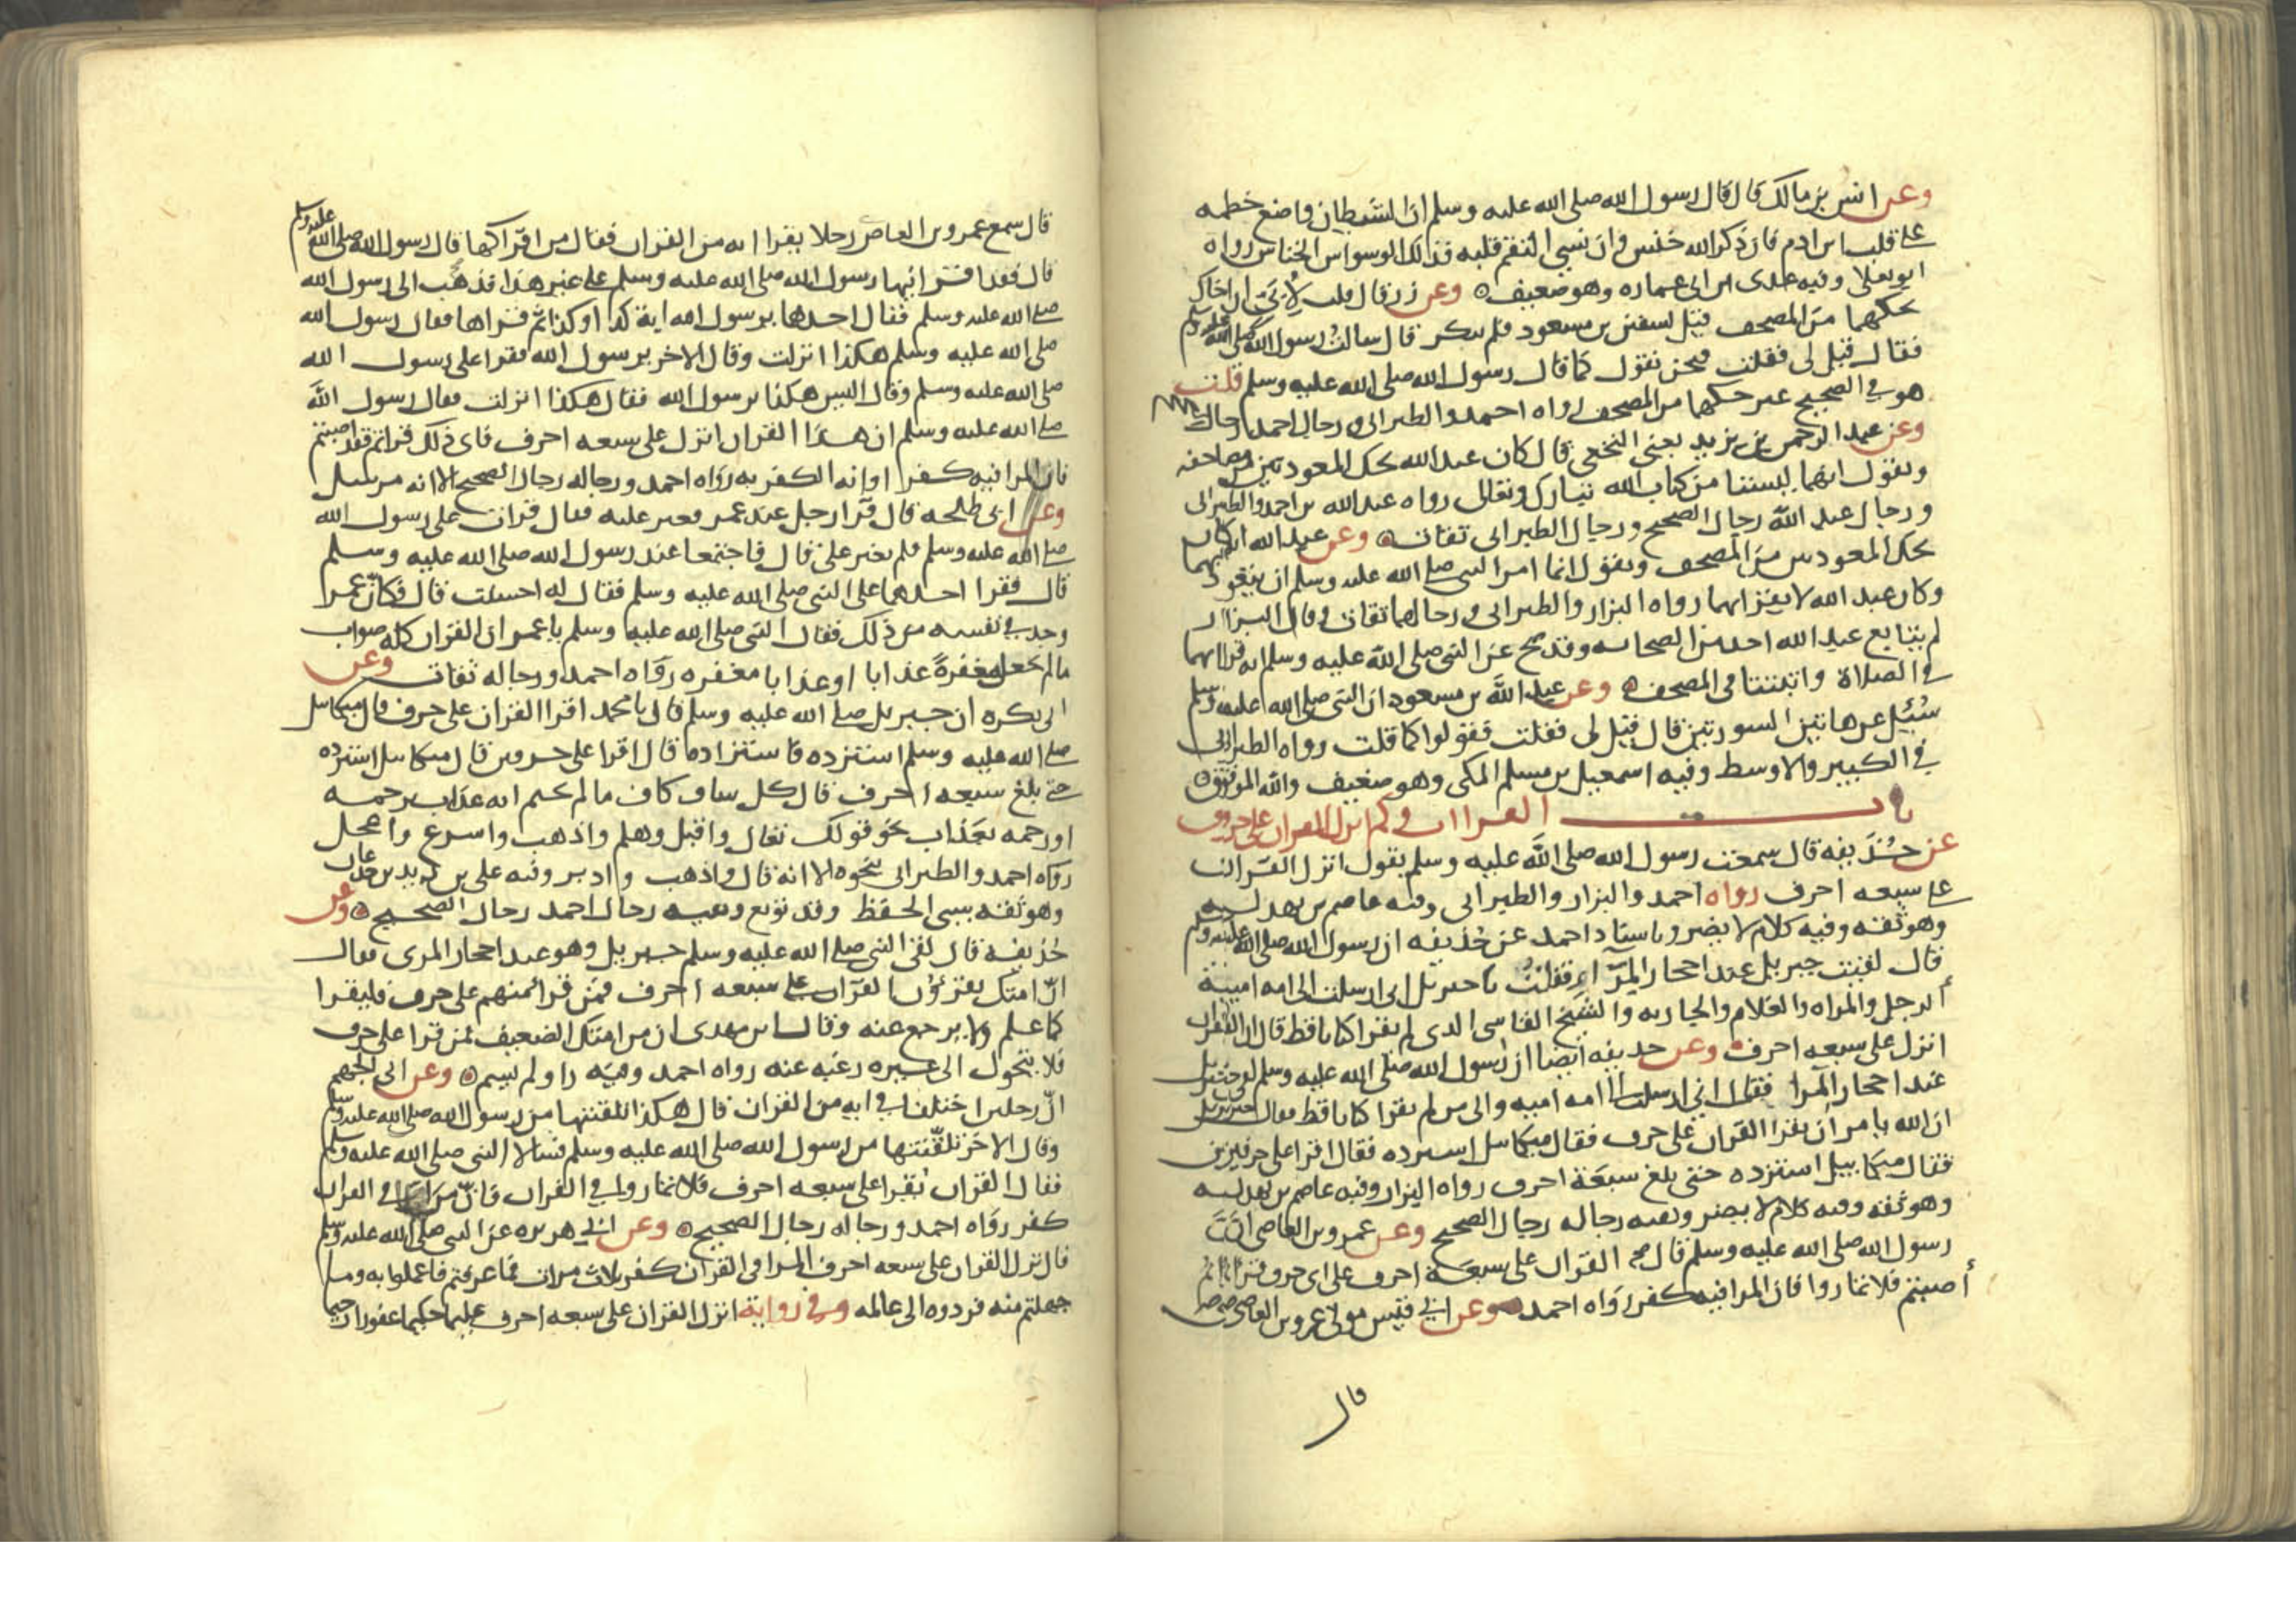 وعن انس بن مالك قال قال رسول الله صلى الله عليه وسلم ان الشيطان واضع خطمه
على قلب ابن ادم فان ذكر الله خنس وان نسي التقم قلبه فذلك الوسواس الخناس رواه
ابو يعلى وفيه عدى بن ابي عماره وهو ضعيف وعن زر قال قلت لأبي ان اخاك
يحكهما من المصحف قيل لسفين بن مسعود فلم ينكر قال سالت رسول الله صلى الله عليه وسلم
فقال قيل لى فقلت فنحن نقول كما قال رسول الله صلى الله عليه وسلم قلت
هو في الصحيح غير حكهما من المصحف رواه احمد والطبراني ورجال احمد رجال
وعن عبد الرحمن بن يزيد يعنى النخعى قال كان عبد الله يحك المعوذتين من مصاحفه
ويقول انهما ليستا من كتاب الله تبارك وتعالى رواه عبد الله بن احمد والطبراني
ورجال عبد الله رجال الصحيح ورجال الطبراني ثقات وعن عبد الله انه كان
يحك المعوذتين من المصحف ويقول انما امر النبي صلى الله عليه وسلم ان يتعوذ بهما
وكان عبد الله لا يقرا بهما رواه البزار والطبراني ورجالهما ثقات وقال البزار
لم يتابع عبد الله احد من الصحابه وقد صح عن النبي صلى الله عليه وسلم انه قرا بهما
في الصلاة واثبتتا في المصحف وعن عبد الله بن مسعود ان النبي صلى الله عليه وسلم
سُئِل عن هاتين السورتين قال قيل لى فقلت فقولوا كما قلت رواه الطبراني
في الكبير والاوسط وفيه اسمعيل بن مسلم المكى وهو ضعيف والله الموفق
باب القراات وكم انزل القران على حرف
عن حُذَيفه قال سمعت رسول الله صلى الله عليه وسلم يقول انزل القران
على سبعه احرف رواه احمد والبزار والطبراني وفيه عاصم بن بهدله
وهو ثقه وفيه كلام لا يضر وباسناد احمد عن حُذيفه ان رسول الله صلى الله عليه وسلم
قال لقيت جبريل عند احجار المِرَاء فقلتُ يا جبريل اني ارسلت الى امه امية
الرجل والمراه والغلام والجاريه والشيخ الفاسى الذى لم يقرا كتابا قط قال ان القران
انزل على سبعه احرف وعن حذيفه ايضا ان رسول الله صلى الله عليه وسلم لقى جبريل
عند احجار المرا فقال انى ارسلت الى امه اميه والى من لم يقرا كتابا قط فقال جبريل
ان الله يامر ان يقرا القران على حرف فقال ميكائيل استزده فقال اقرا على حرفين
فقال ميكاييل استزده حتى بلغ سبعة احرف رواه البزار وفيه عاصم بن بهدله
وهو ثقه وفيه كلام لا يضر وبقيه رجاله رجال الصحيح وعن عمرو بن العاصى انَّ
رسول الله صلى الله عليه وسلم قال القران على سبعة احرف على اى حرف قراتم
أصبتم فلا تماروا فان المرا فيه كفر رواه احمد وعن ابي قيس مولى عمرو بن العاصى
قال
قال سمع عمرو بن العاص رجلا يقرا ايه من القران فقال من اقراكها قال رسول الله صلى الله عليه وسلم
قال فقد اقرانيها رسول الله صلى الله عليه وسلم على غير هذا فذهب الى رسول الله
صلى الله عليه وسلم فقال احدهما يرسول الله اية كذا وكذا ثم قراها فقال رسول الله
صلى الله عليه وسلم هكذا انزلت وقال الاخر يرسول الله فقرا على رسول الله
صلى الله عليه وسلم وقال اليس هكذا يرسول الله فقال هكذا انزلت فقال رسول الله
صلى الله عليه وسلم ان هذا القران انزل على سبعه احرف فاى ذلك قراتم فقد اصبتم
فان المرا فيه كفرا او انه الكفر به رواه احمد ورجاله رجال الصحيح الا انه مرسل
وعن ابى طلحه قال قرا رجل عند عمر فغير عليه فقال قرات على رسول الله
صلى الله عليه وسلم فلم يغير على قال فاجتمعا عند رسول الله صلى الله عليه وسلم
قال فقرا احدهما على النبي صلى الله عليه وسلم فقال له احسنت قال فكان عمر
وجد في نفسه من ذلك فقال النبي صلى الله عليه وسلم يا عمر ان القران كله صواب
ما لم تجعل مغفرة عذابا او عذابا مغفره رواه احمد ورجاله ثقات وعن
ابي بكره ان جبريل صلى الله عليه وسلم قال يا محمد اقرا القران على حرف قال ميكائيل
صلى الله عليه وسلم استزده فاستزاده قال اقرا على حرفين قال ميكائيل استزده
حتى بلغ سبعه احرف قال كل شاف كاف ما لم تختم ايه عذاب برحمه
او رحمه بعذاب نحو قولك تعال واقبل وهلم واذهب واسرع واعجل
رواه احمد والطبراني بنحوه الا انه قال واذهب وادبر وفيه على بن زيد بن جدعان
وهو ثقه سيئ الحفظ وقد توبع وبقيه رجال احمد رجال الصحيح وعن
حُذيفه قال لقى النبي صلى الله عليه وسلم جبريل وهو عند احجار المرى فقال
انّ امتك يقرؤن القران على سبعه احرف فمن قرا منهم على حرف فليقرا
كما علم ولا يرجع عنه وقال ابن مهدى ان من امتك الضعيف فمن قرا على حرف
فلا يتحول الى غيره رغبه عنه رواه احمد وفيه راو لم يسم وعن ابى الجهم
انّ رجلين اختلفا في ايه من القران قال هكذا تلقنتها من رسول الله صلى الله عليه وسلم
وقال الاخر تلقّنتها من رسول الله صلى الله عليه وسلم فسالا النبي صلى الله عليه وسلم
فقال القران يُقرا على سبعه احرف فلا تماروا في القران فانّ مرا في القران
كفر رواه احمد ورجاله رجال الصحيح وعن ابي هريره عن النبي صلى الله عليه وسلم
قال نزل القران على سبعه احرف المرا في القران كفر ثلاث مرات فما عرفتم فاعملوا به وما
جهلتم منه فردوه الى عالمه وفي رواية انزل القران على سبعه احرف عليما حكيما غفورا رحيما